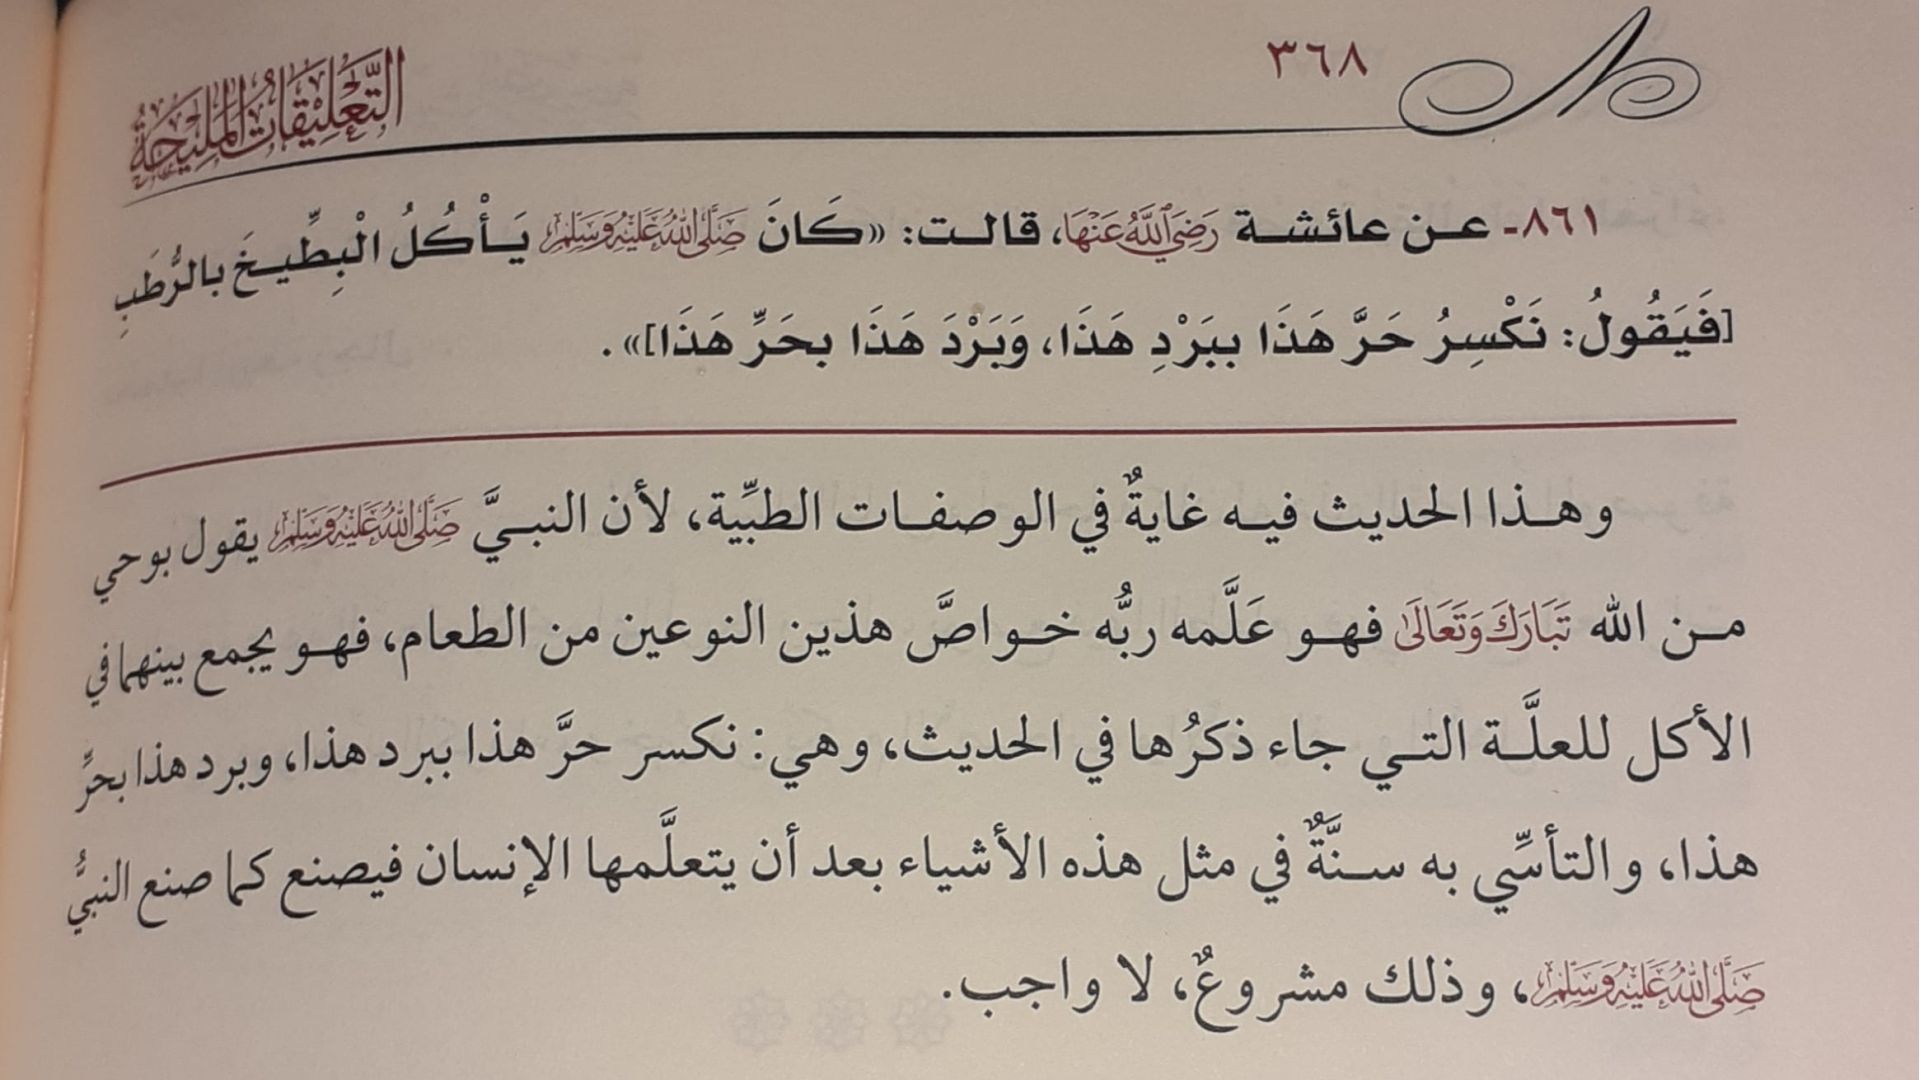 ٣٦٨
التَّعْلِيْقَاتُ الْمَلِيْحَةُ
٨٦١- عن عائشة رَضِيَ اللَّهُ عَنْهَا، قالت: «كَانَ صَلَّى اللَّهُ عَلَيْهِ وَسَلَّمَ يَأْكُلُ الْبِطِّيخَ بالرُّطَبِ
[فَيَقُولُ: نَكْسِرُ حَرَّ هَذَا ببَرْدِ هَذَا، وَبَرْدَ هَذَا بحَرِّ هَذَا]».
وهذا الحديث فيه غايةٌ في الوصفات الطبِّية، لأن النبيَّ صَلَّى اللَّهُ عَلَيْهِ وَسَلَّمَ يقول بوحي
من الله تَبَارَكَ وَتَعَالَى فهو عَلَّمه ربُّه خواصَّ هذين النوعين من الطعام، فهو يجمع بينهما في
الأكل للعلَّة التي جاء ذكرُها في الحديث، وهي: نكسر حرَّ هذا ببرد هذا، وبرد هذا بحرِّ
هذا، والتأسِّي به سنَّةٌ في مثل هذه الأشياء بعد أن يتعلَّمها الإنسان فيصنع كما صنع النبيُّ
صَلَّى اللَّهُ عَلَيْهِ وَسَلَّمَ، وذلك مشروعٌ، لا واجب.